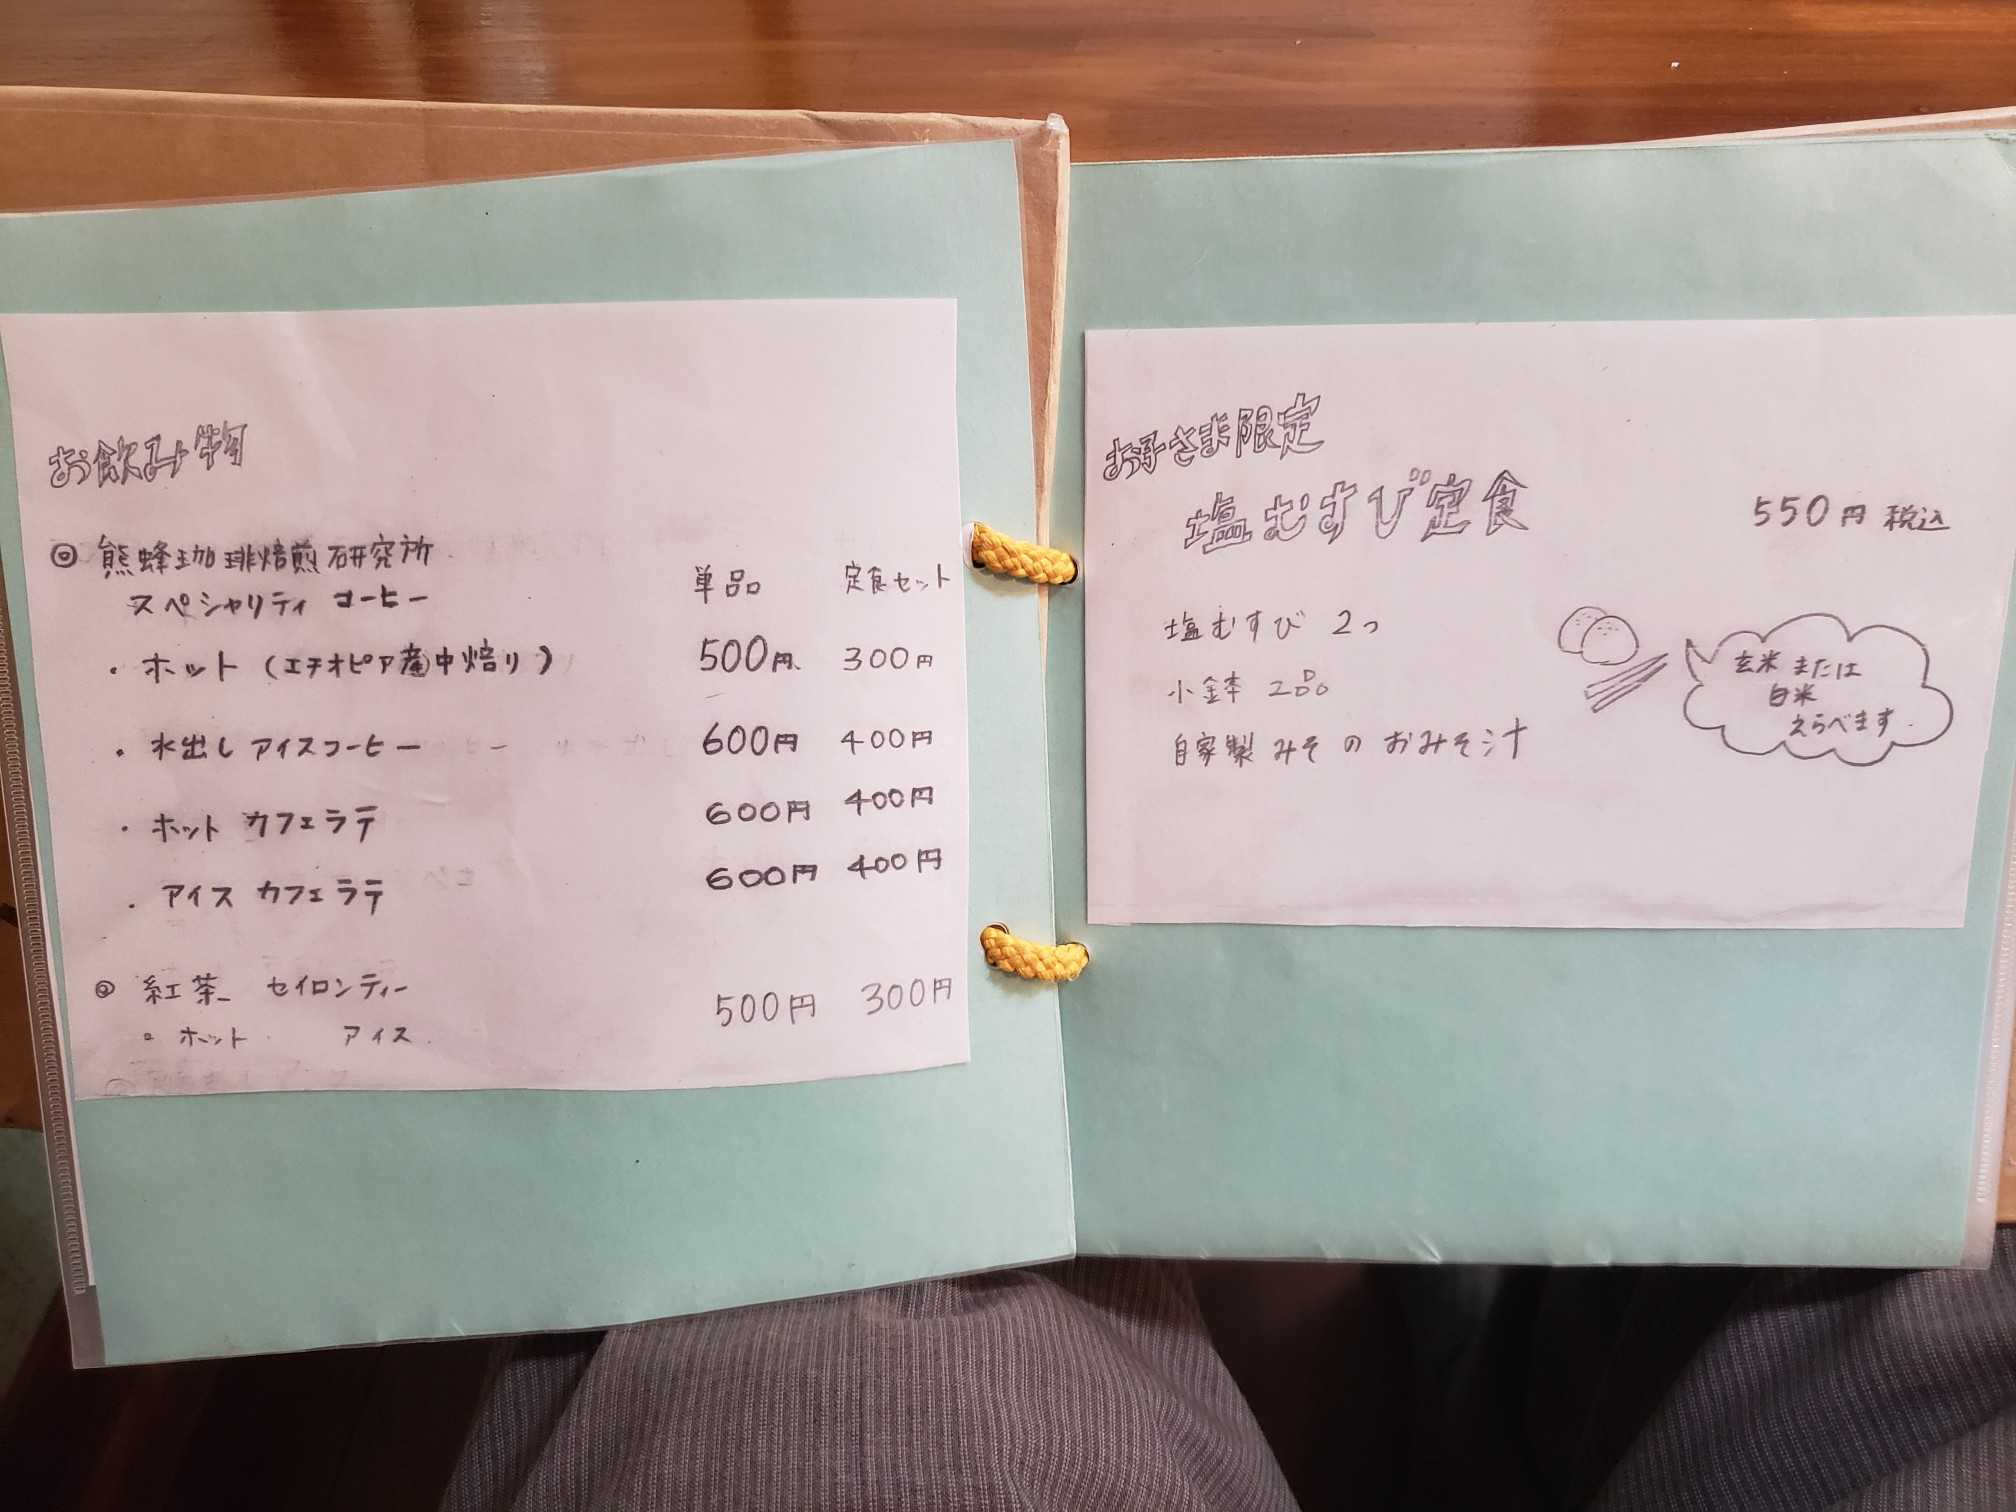 お飲み物
◎ 熊蜂珈琲焙煎研究所
スペシャリティ コーヒー
単品 定食セット
・ホット (エチオピア産中焙り) 500円 300円
・水出しアイスコーヒー 600円 400円
・ホット カフェラテ 600円 400円
・アイス カフェラテ 600円 400円
◎ 紅茶 セイロンティー 500円 300円
。ホット アイス
お子さま限定
塩むすび定食 550円 税込
塩むすび 2つ
小鉢 2品
自家製みそのおみそ汁
玄米または
白米
えらべます。